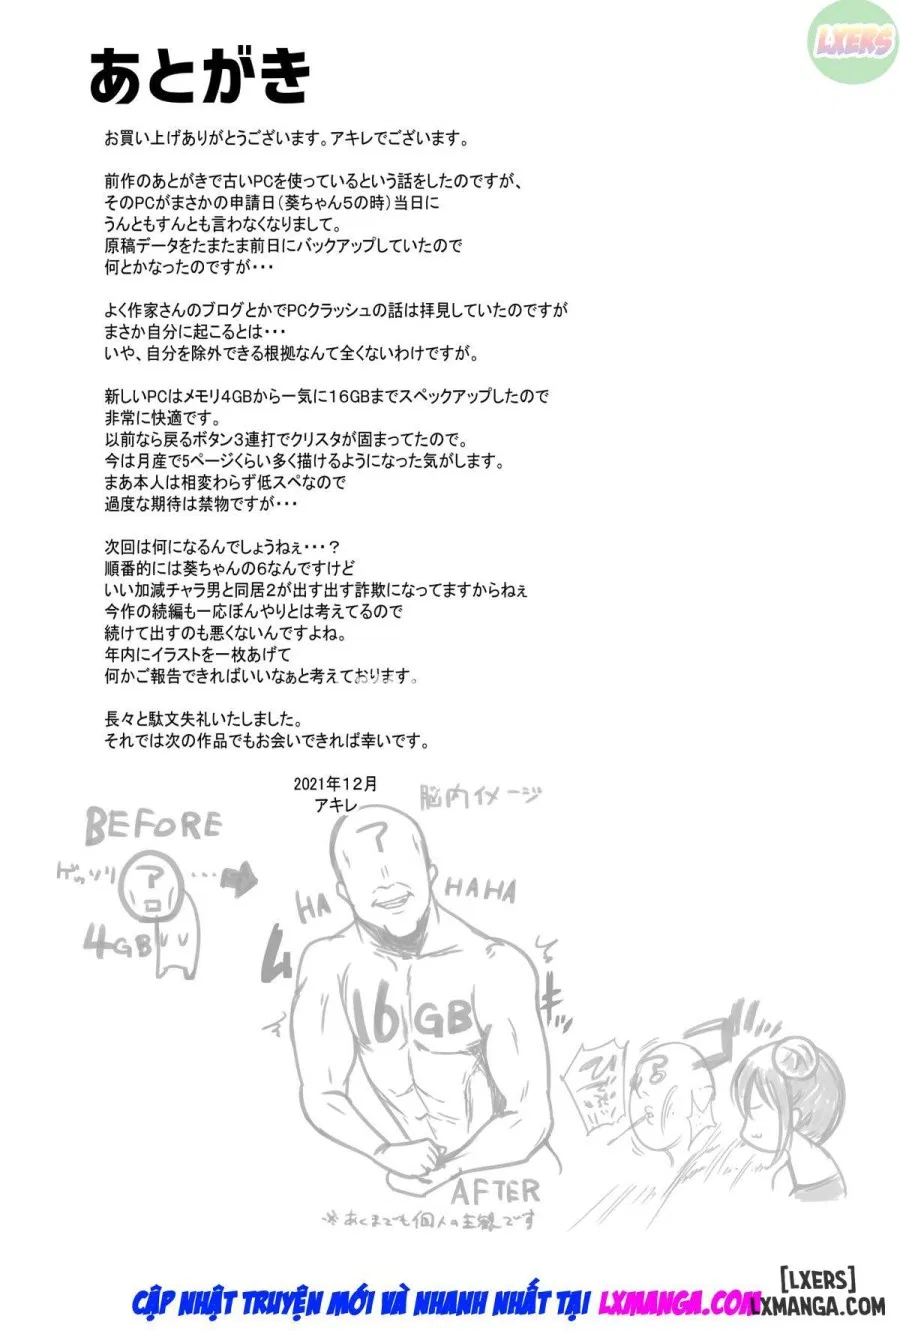 LXERS
あとがき
お買い上げありがとうございます。アキレでございます。
前作のあとがきで古いPCを使っているという話をしたのですが、
そのPCがまさかの申請日（葵ちゃん5の時）当日に
うんともすんとも言わなくなりまして。
原稿データをたまたま前日にバックアップしていたので
何とかなったのですが・・・
よく作家さんのブログとかでPCクラッシュの話は拝見していたのですが
まさか自分に起こるとは・・・
いや、自分を除外できる根拠なんて全くないわけですが。
新しいPCはメモリ4GBから一気に16GBまでスペックアップしたので
非常に快適です。
以前なら戻るボタン3連打でクリスタが固まってたので。
今は月産で5ページくらい多く描けるようになった気がします。
まあ本人は相変わらず低スペなので
過度な期待は禁物ですが・・・
次回は何になるんでしょうねぇ・・・？
順番的には葵ちゃんの6なんですけど
いい加減チャラ男と同居2が出す出す詐欺になってますからねぇ
今作の続編も一応ぼんやりとは考えてるので
続けて出すのも悪くないんですよね。
年内にイラストを一枚あげて
何かご報告できればいいなぁと考えております。
長々と駄文失礼いたしました。
それでは次の作品でもお会いできれば幸いです。
2021年12月
アキレ
脳内イメージ
BEFORE
ゲッソリ
?
・・・
4GB
?
HA
HAHA
ム
キッ
16GB
AFTER
※あくまでも個人の主観です
[LXERS]
CẬP NHẬT TRUYỆN MỚI VÀ NHANH NHẤT TẠI LXMANGA.COM
LXMANGA.COM